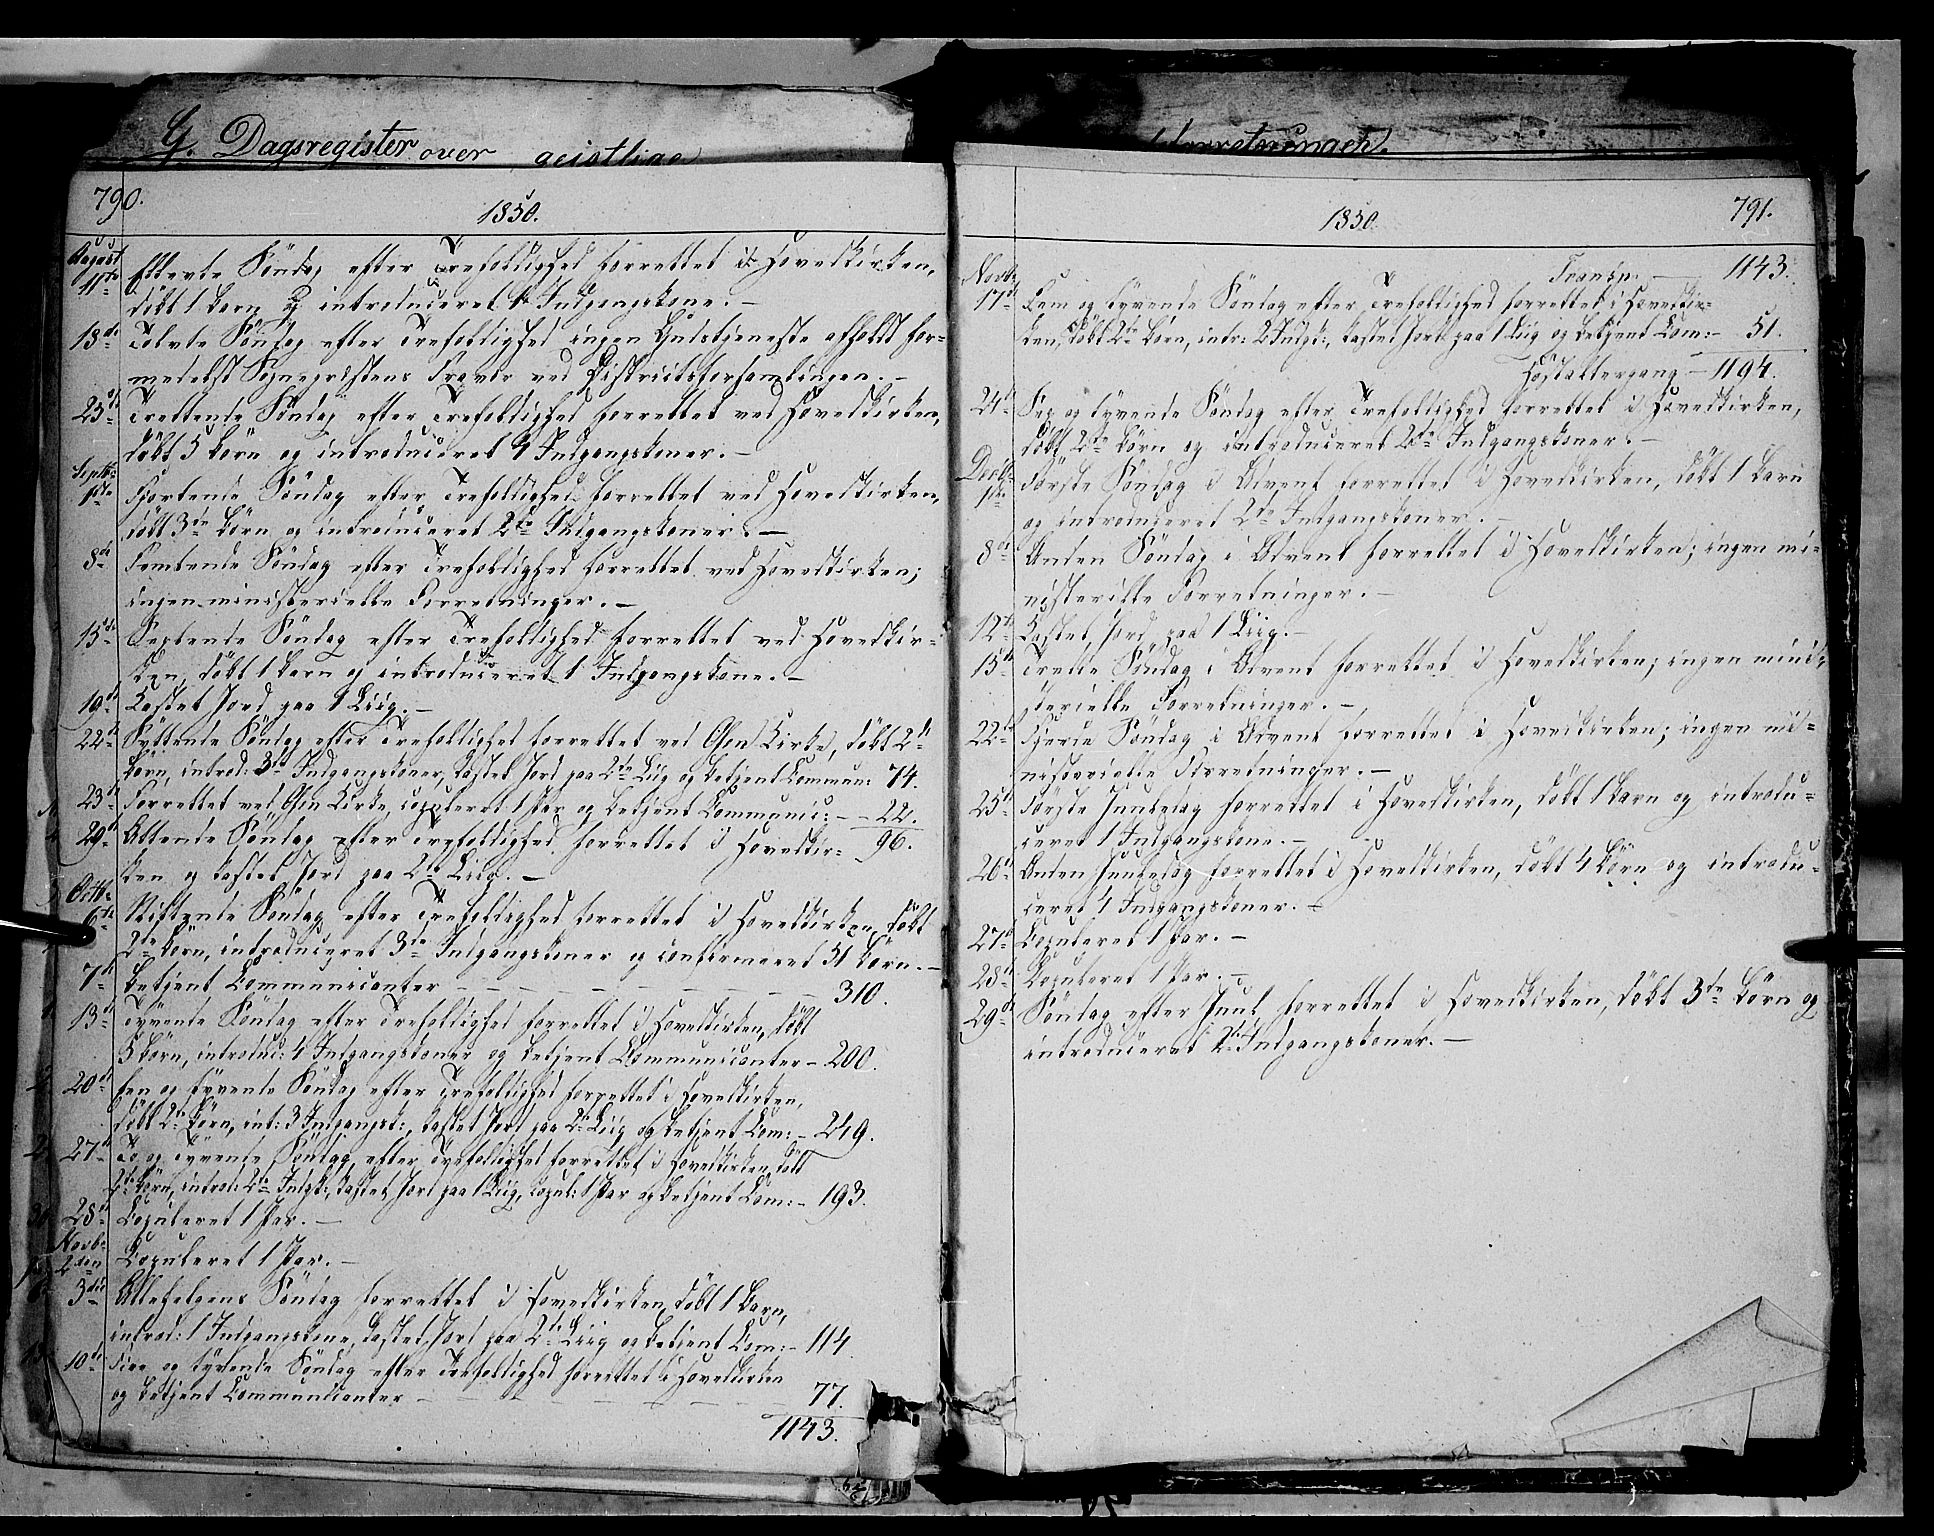 G. Dagsregister over geistlige
790.
1850.
August 11te Ellevte Söndag efter Trefoldighed forrettet i Hovedkirken,
döbt 1 Barn og introduceret 1 Indgangskone. –
18de Tolvte Söndag efter Trefoldighed ingen Gudstjeneste afholdt for-
medelst Sognepræstens Fravær ved Districtsforsamlingen. –
25de Trettende Söndag efter Trefoldighed forrettet ved Hovedkirken,
döbt 5 Börn og introduceret 4 Indgangskoner. –
Septbr 1ste Fjortende Söndag efter Trefoldighed forrettet ved Hovedkirken,
döbt 3de Börn og introduceret 2de Indgangskoner. –
8de Femtende Söndag efter Trefoldighed forrettet ved Hovedkirken;
ingen ministerielle Forretninger. –
15de Sextende Söndag efter Trefoldighed forrettet ved Hovedkir-
ken, döbt 1 Barn og introduceret 1 Indgangskone. –
19de Kastet Jord paa 1 Liig. –
22de Syttende Söndag efter Trefoldighed forrettet ved Osen Kirke, döbt 2de
Börn, introd: 3de Indgangskoner, kastet Jord paa 2de Liig og betjent Commun: 74.
23de Forrettet ved Osen Kirke, copuleret 1 Par og betjent Communic: – 22.
29de Attende Söndag efter Trefoldighed forrettet i Hovedkir- 96.
ken og kastet Jord paa 2de Liig. –
Octbr 6te Nittende Söndag efter Trefoldighed forrettet i Hovedkirken, döbt
2de Börn, introduceret 3de Indgangskoner og confirmeret 31 Börn. –
7de Betjent Communicanter – – – – – – – 310.
13de Tyvende Söndag efter Trefoldighed forrettet i Hovedkirken, döbt
5 Börn, introduc: 4 Indgangskoner og betjent Communicanter – 200.
20de Een og tyvende Söndag efter Trefoldighed forrettet i Hovedkirken,
döbt 2de Börn, int: 3 Indgangsk:, kastet Jord paa 2de Liig og betjent Com: – 249.
27de To og Tyvende Söndag efter Trefoldighed forrettet i Hovedkirken, döbt
2de Börn, introd: 2de Indgk:, kastet Jord paa 1 Liig, copul: 1 Par og betjent Com: – 193.
28de Copuleret 1 Par. –
Novbr
2den Copuleret 1 Par. –
3die Allehelgens Söndag forrettet i Hovedkirken, döbt 1 Barn,
introd: 1 Indgangskone, kastet Jord paa 2de Liig og betjent Com: – 114
10de Fire og tyvende Söndag efter Trefoldighed forrettet i Hovedkirken
og betjent Communicanter – – – – – – – 77.
1143.
Forretninger.
791.
1850.
Transp. – 1143.
Novbr 17de Fem og tyvende Söndag efter Trefoldighed forrettet i Hovedkir-
ken, döbt 2de Börn, intr: 2 Indgk:, kastet Jord paa 1 Liig og betjent Com: – 51.
Höstaltergang – 1194.
24de Sex og tyvende Söndag efter Trefoldighed forrettet i Hovedkirken,
döbt 2de Börn og introduceret 2de Indgangskoner. –
Decbr 1ste Förste Söndag i Advent forrettet i Hovedkirken, döbt 1 Barn
og introduceret 2de Indgangskoner. –
8de Anden Söndag i Advent forrettet i Hovedkirken; ingen mi-
nisterielle Forretninger. –
12te Kastet Jord paa 1 Liig. –
15de Tredie Söndag i Advent forrettet i Hovedkirken; ingen mini-
sterielle Forretninger. –
22de Fjerde Söndag i Advent forrettet i Hovedkirken; ingen mi-
nisterielle Forretninger. –
25de Förste Juuledag forrettet i Hovedkirken, döbt 1 Barn og introdu-
ceret 1 Indgangskone. –
26de Anden Juuledag forrettet i Hovedkirken, döbt 4 Börn og introdu-
ceret 4 Indgangskoner. –
27de Copuleret 1 Par. –
28de Copuleret 1 Par. –
29de Söndag efter Juul forrettet i Hovedkirken, döbt 3de Börn og
introduceret 2de Indgangskoner. –